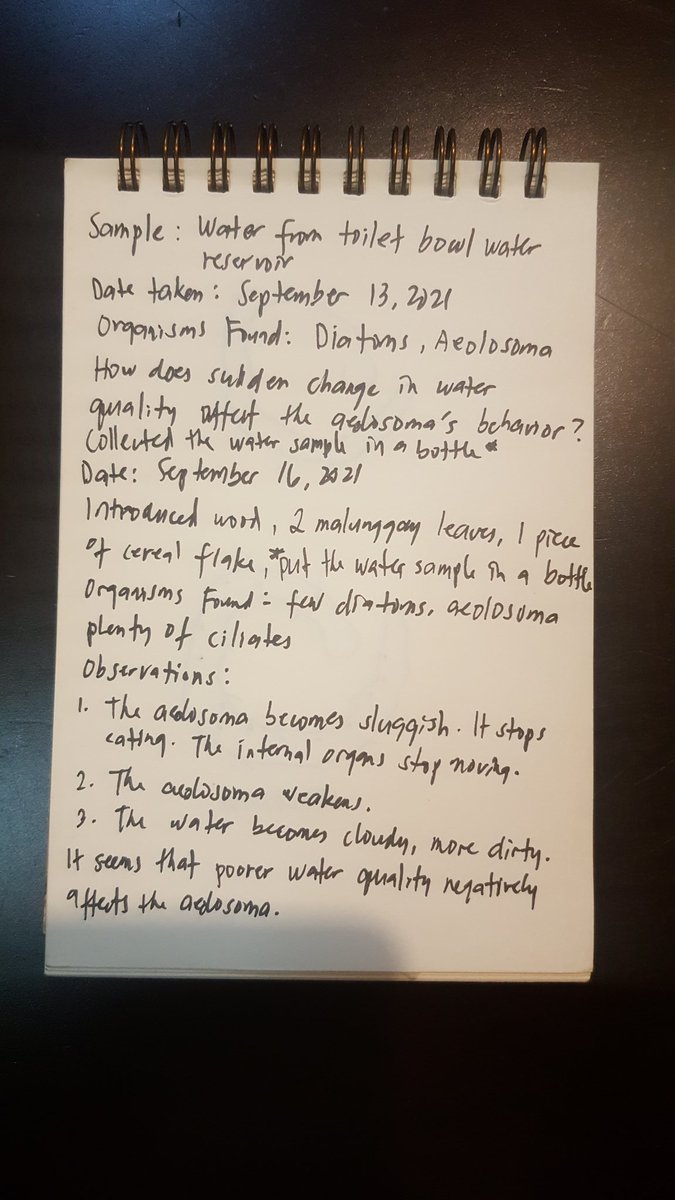 Sample: Water from toilet bowl water
reservoir
Date taken: September 13, 2021
Organisms Found: Diatoms, Aeolosoma
How does sudden change in water
quality affect the aeolosoma's behavior?
Collected the water sample in a bottle*
Date: September 16, 2021
Introduced wood, 2 malunggay leaves, 1 piece
of cereal flake, *put the water sample in a bottle
Organisms Found: few diatoms, aeolosoma
plenty of ciliates
Observations:
1. The aeolosoma becomes sluggish. It stops
eating. The internal organs stop moving.
2. The aeolosoma weakens.
3. The water becomes cloudy, more dirty.
It seems that poorer water quality negatively
affects the aeolosoma.